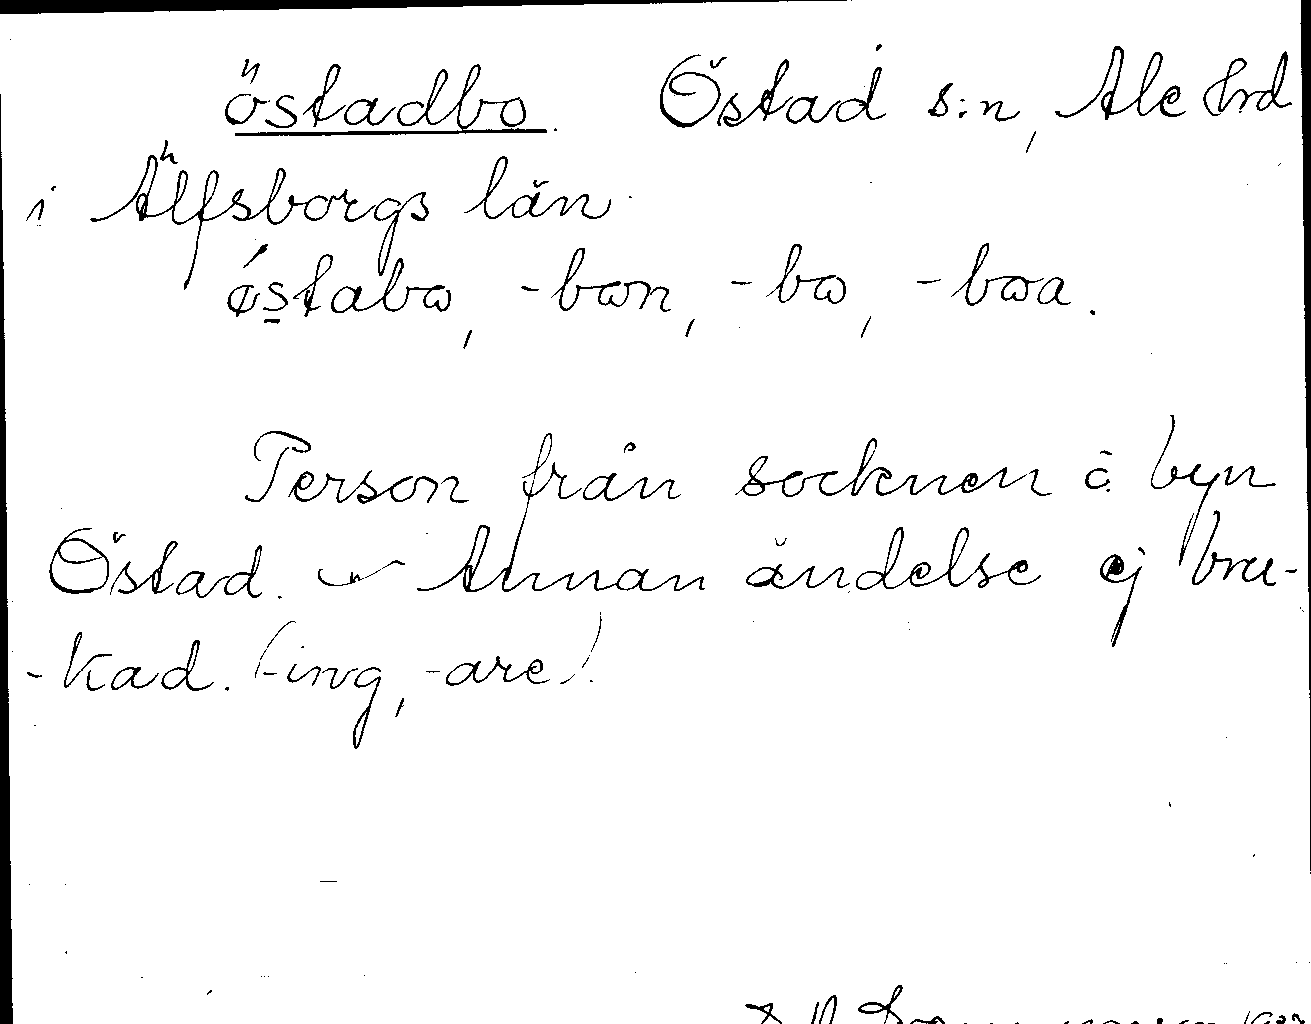 östadbo. Östad s:n, Ale hrd
i Älfsborgs län.
ǿstabω, -bωn, -bω, -bωa.
Person från socknen å byn
Östad. Annan ändelse ej bru-
-kad. (-ing, -are).